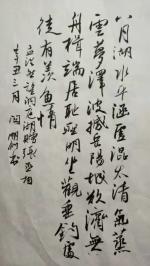 八月湖水平涵虚混太清氣蒸
雲夢澤波撼岳陽城欲濟無
舟楫端居恥聖明坐觀垂釣者
徒有羨魚情
孟浩然望洞庭湖贈張丞相
辛丑三月